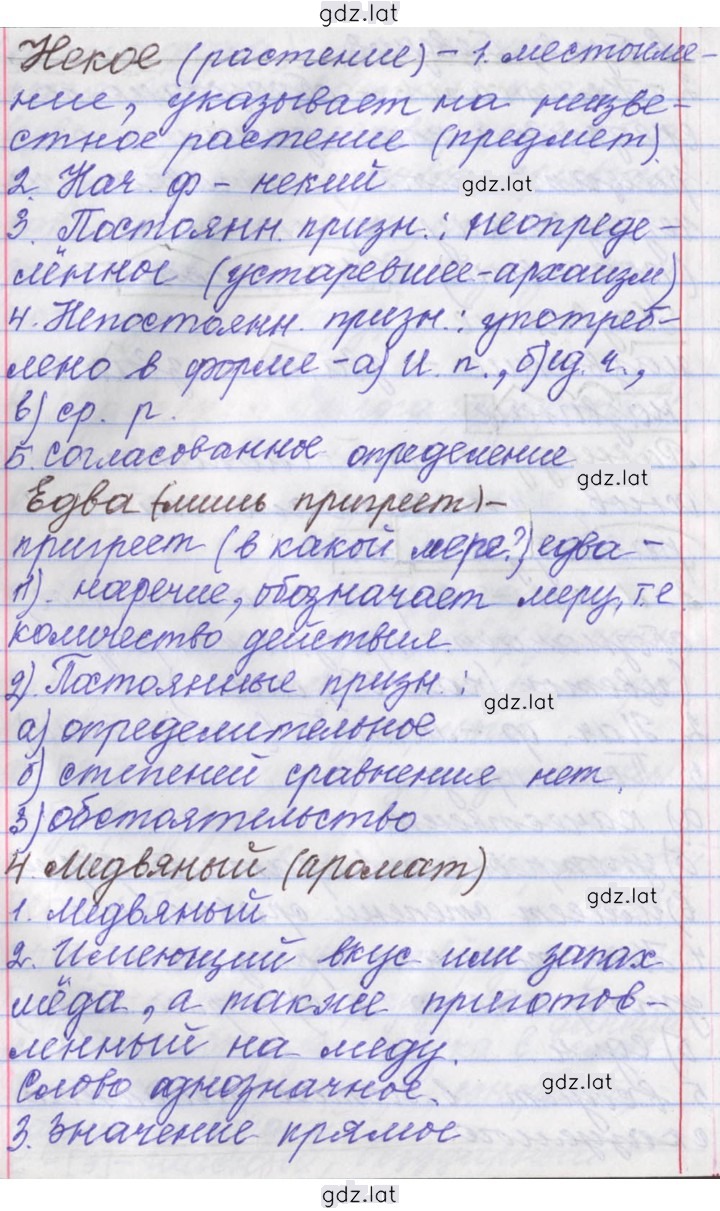 gdz.lat
Некое (растение) – 1. местоиме-
ние, указывает на неизве-
стное растение (предмет).
2. Нач. ф – некий gdz.lat
3. Постоянн. призн.: неопреде-
лённое (устаревшее-архаизм)
4. Непостоянн. призн.: употреб-
лено в форме – а) И. п., б) ед. ч.,
в) ср. р.
5. Согласованное определение
gdz.lat
Едва (лишь пригреет) –
пригреет (в какой мере?) едва –
1). наречие, обозначает меру, т.е.
количество действия.
2). Постоянные призн.:
gdz.lat
а) определительное
б) степеней сравнения нет.
3) обстоятельство
4 Медвяный (аромат)
gdz.lat
1. Медвяный
2. Имеющий вкус или запах
мёда, а также приготов-
ленный на меду.
Слово однозначное. gdz.lat
3. Значение прямое
gdz.lat